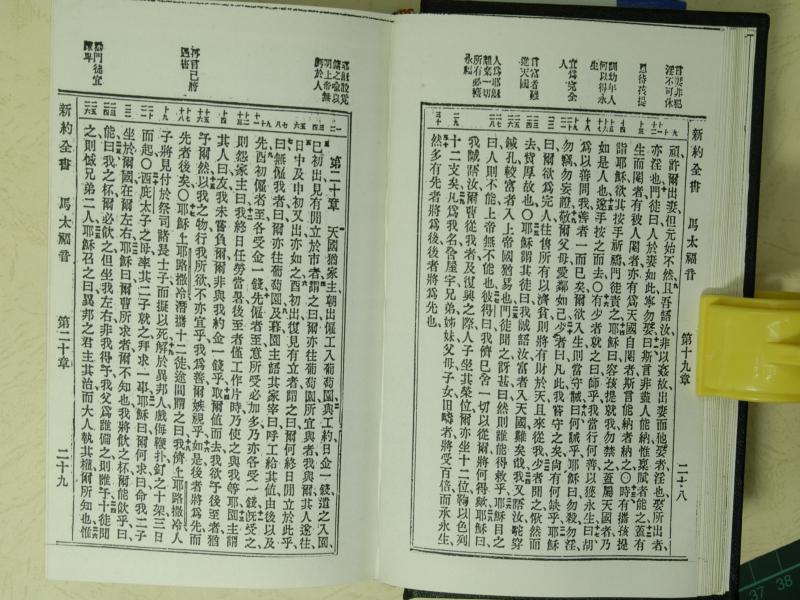 新約全書 馬太福音 第十九章 二十八
言妻非犯
淫不可休
訓幼年人
何以得永
生
宜為完全
人
言富者難
進天國
人為耶穌
棄一切
所有必獲
永福
頑許爾出妻但元始不然且吾語汝非以姦故出妻而他娶者淫也娶所出者
亦淫也門徒曰人於妻如此寧勿娶曰斯言非盡人能納惟稟賦者能之蓋有
生而閹者有被人閹者亦有為天國自閹者斯言能納者納之○時有攜孩提
詣耶穌欲其按手祈禱門徒責之耶穌曰容孩提就我勿禁之蓋屬天國者乃
如是人也遂手按之而去○有少者就之曰師乎我當行何善以獲永生曰胡
為以善問我善者一而已矣爾欲入生則當守誡曰何誡乎耶穌曰勿殺勿淫
勿竊勿妄證敬爾父母愛鄰如己少者曰凡此我皆守之矣尚有何缺乎耶穌
曰爾欲為完人往售所有以濟貧則將有財於天且來從我少者聞之愀然而
去貲厚故也○耶穌謂其徒曰我誠語汝富者入天國難矣哉我又語汝駝穿
鍼孔較富者入上帝國猶易也門徒聞之訝甚曰然則誰能得救乎耶穌目之
曰人則不能上帝無不能也彼得曰我儕已舍一切以從爾將何得歟耶穌曰
我誠語汝爾曹從我者及復興之際人子坐其榮位爾亦坐十二位鞫以色列
十二支矣凡為我名舍屋宇兄弟姊妹父母子女田疇者將受百倍而承永生
然多有先者將為後後者將為先也
第二十章 天國猶家主朝出傭工入葡萄園與工約日金一錢遣之入園
巳初出見有閒立於市者謂之曰爾亦往葡萄園所宜與者我與爾其人遂往
日中及申初又出亦如之酉初出復見有立者謂之曰爾何終日閒立於此乎
曰無傭我者曰爾亦往葡萄園及暮園主語其家宰曰呼工給其值由後以及
先酉初傭者至各受金一錢先傭者至意所受必加多乃亦各受一錢既受之
則怨家主曰我終日任勞當暑後至者僅工作片時乃使之與我等耶園主謂
其人曰友我未嘗負爾爾非與我約金一錢乎取爾值而去我欲予後至者猶
予爾然以我之物行我所欲不亦宜乎我為善爾嫉視乎如是後者將為先而
先者後矣○耶穌上耶路撒冷潛攜十二徒途間謂之曰我儕上耶路撒冷人
子將見付於祭司諸長士子而擬以死解於異邦人戲侮鞭扑釘之十架三日
而起○西庇太子之母率其二子就之拜求一事耶穌曰爾何求曰命我二子
坐於爾國在爾左右耶穌曰爾曹所求者爾不知也我將飲之杯爾能飲乎曰
能曰我之杯爾必飲之但坐我左右非我得予我父為誰備之則誰予十徒聞
之則憾兄弟二人耶穌召之曰異邦之君主其治而大人執其權爾所知也惟
新約全書 馬太福音 第二十章 二十九
37 38